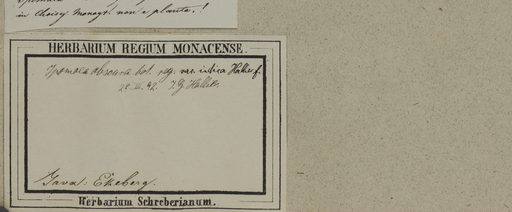 in Choisy Monogr. non e planta.!
HERBARIUM REGIUM MONACENSE.
Ipomoea obscura bot. reg. var. indica Hallier f.
28. III. 92. H. G. Hallier.
Java: Ekeberg.
Herbarium Schreberianum.